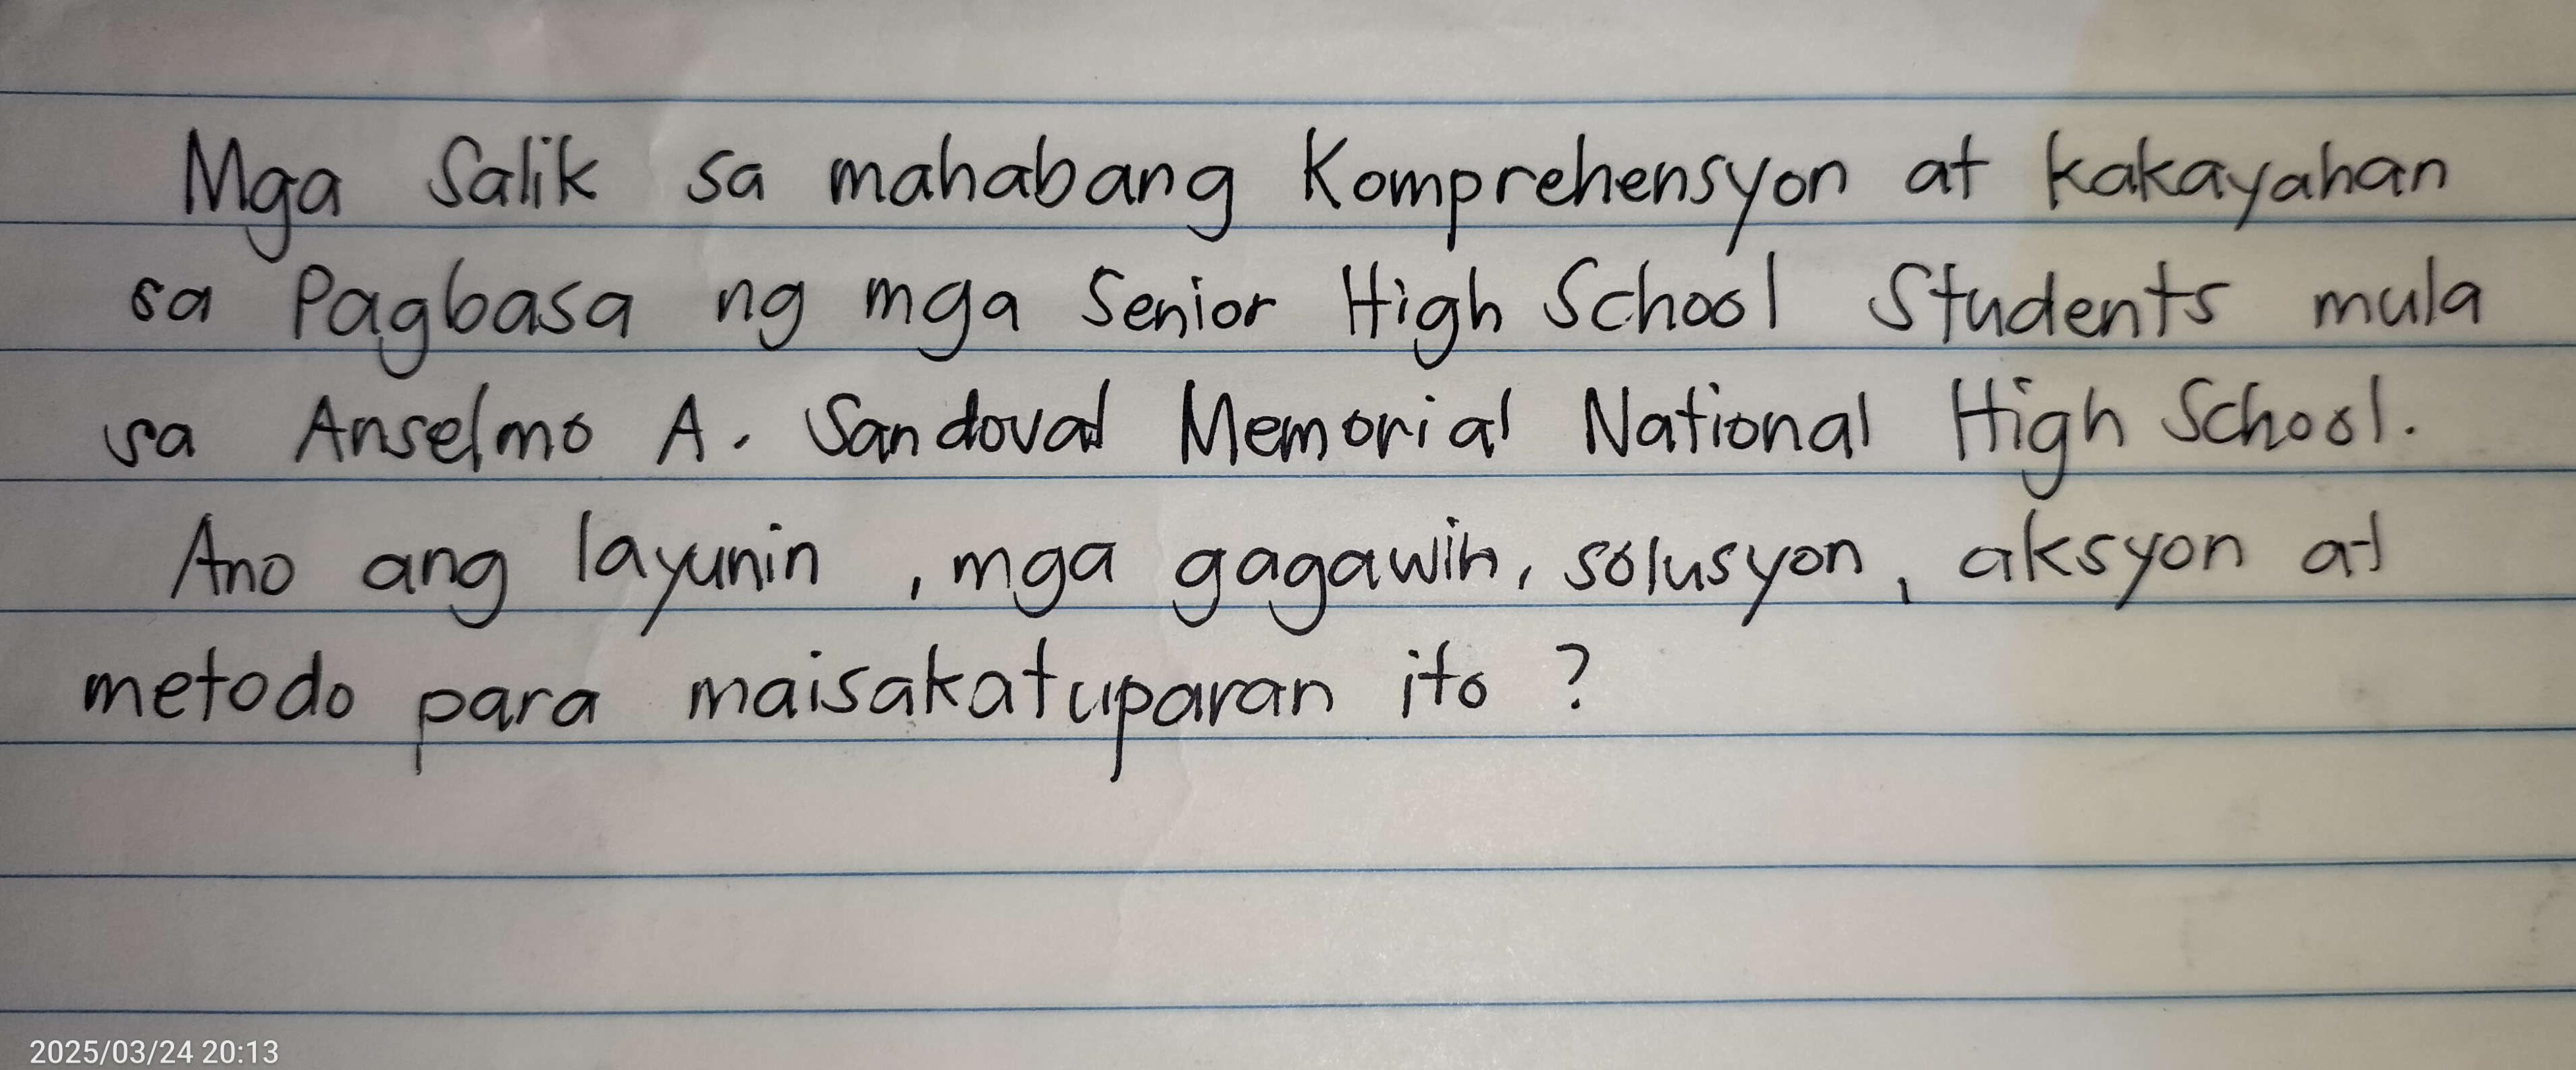 Mga Salik sa mahabang Komprehensyon at kakayahan
sa Pagbasa ng mga Senior High School Students mula
sa Anselmo A. Sandoval Memorial National High School.
Ano ang layunin , mga gagawin, solusyon, aksyon at
metodo para maisakatuparan ito ?
2025/03/24 20:13